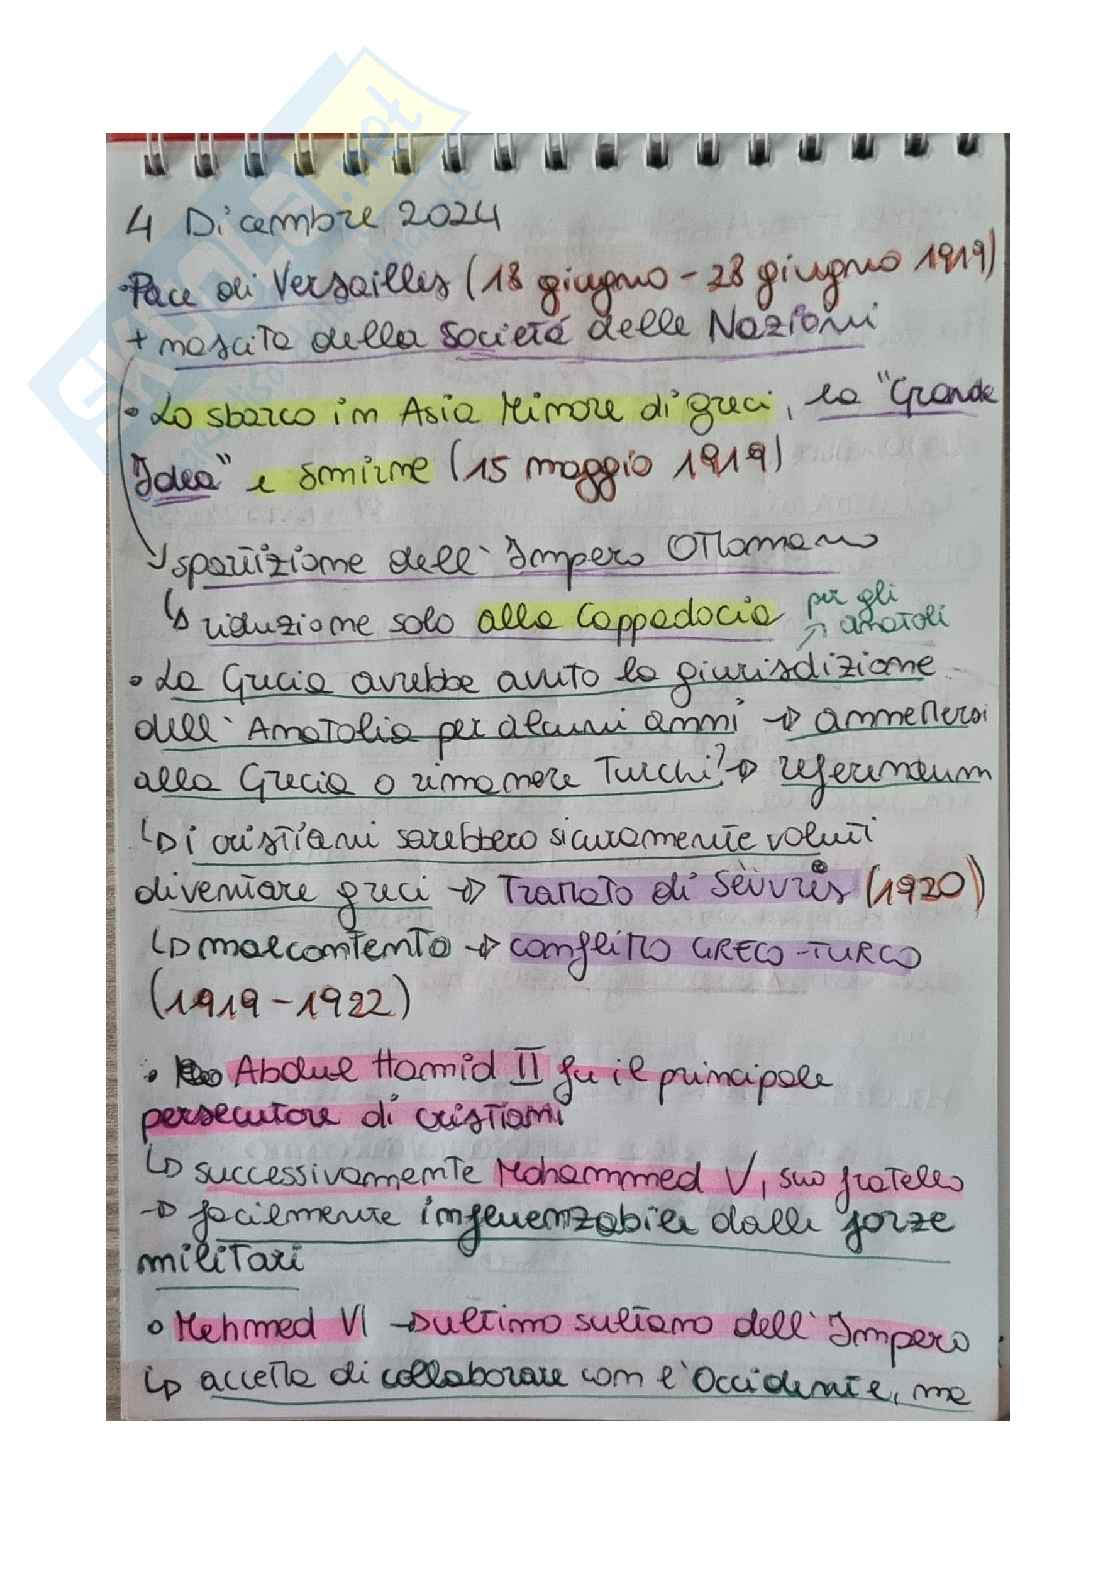 4 Dicembre 2024
•Pace di Versailles (18 giugno - 28 giugno 1919)
+ nascita della società delle Nazioni
• Lo sbarco in Asia Minore di greci, la "Grande
Idea" e Smirne (15 maggio 1919)
↘ spartizione dell'Impero Ottomano
↳ riduzione solo alla Cappadocia
per gli
↗ anatoli
• La Grecia avrebbe avuto la giurisdizione
dell'Anatolia per alcuni anni → annettersi
alla Grecia o rimanere Turchi? → referendum
↳ i cristiani sarebbero sicuramente voluti
diventare greci → Trattato di Sèvvrès (1920)
↳ malcontento → conflitto GRECO-TURCO
(1919-1922)
• Abdul Hamid II fu il principale
persecutore di cristiani
↳ successivamente Mohammed V, suo fratello
→ facilmente influenzabile dalle forze
militari
• Mehmed VI → ultimo sultano dell'Impero
↳ accetta di collaborare con l'Occidente, ma
SKUOLA.net